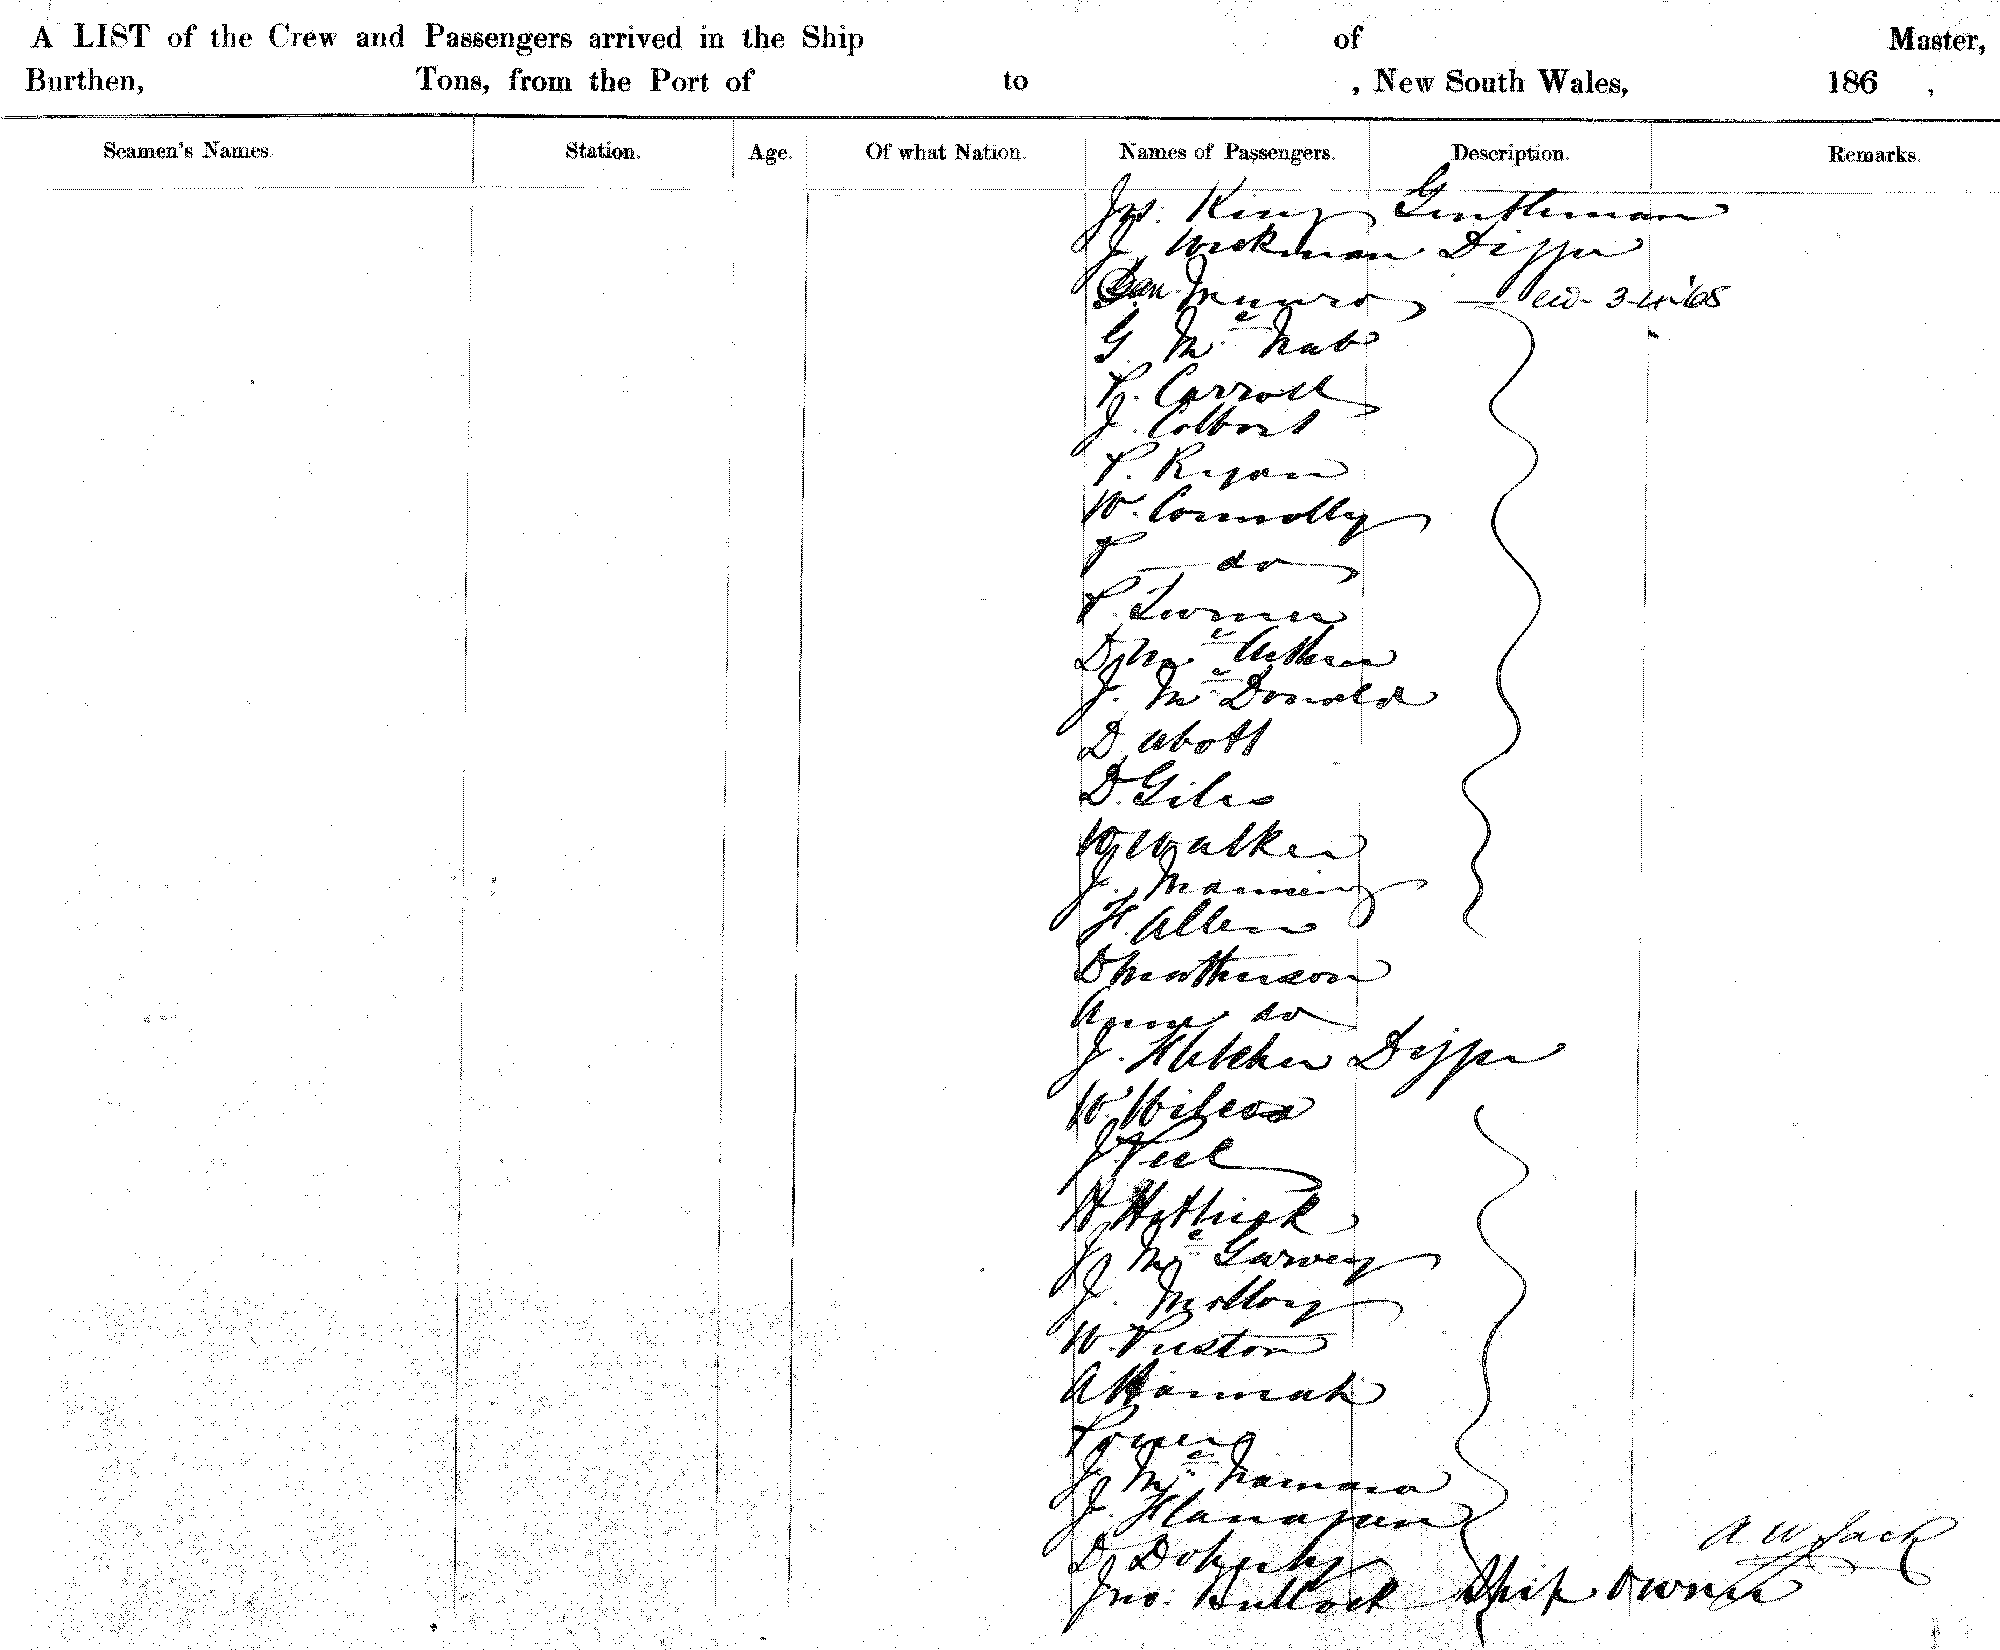 A LIST of the Crew and Passengers arrived in the Ship of Master,
Burthen, Tons, from the Port of to , New South Wales, 186 ,
Seamen's Names. Station. Age. Of what Nation. Names of Passengers. Description. Remarks.
Jas. King Gentleman
J. Workman Digger
Dan Munro
G Mc Nab
P. Carroll
J. Colbert
P. Ryan
W. Connolly
T do
P. Turner
D. Mc Arthur
J. Mc Donald
D Abott
D. Giles
W. Walker
J. Manning
H. Allen
D Matherson
Anne do
J. Fletcher Digger
W. Wilcox
J. Peel
H Hettrick
J. Mc Garvey
J. Molloy
W. Preston
A Hannah
Power
J. Mc Namara
J. Flanagan
D. Doherty
Jno. Bullock Ship Owner
A W Jack